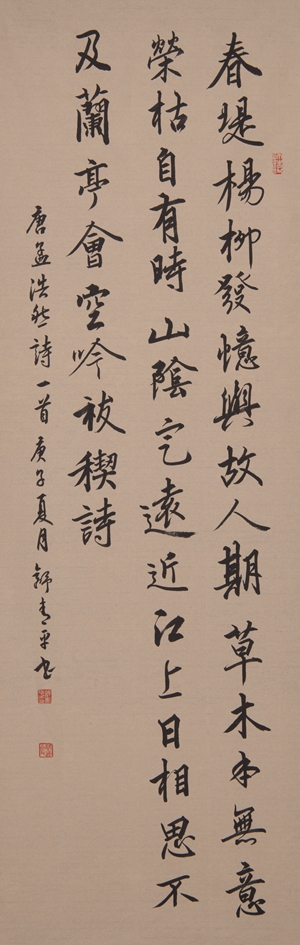 春堤楊柳發憶與故人期草木本無意
榮枯自有時山陰定遠近江上日相思不
及蘭亭會空吟祓稧詩
唐孟浩然詩一首庚子夏月青平书